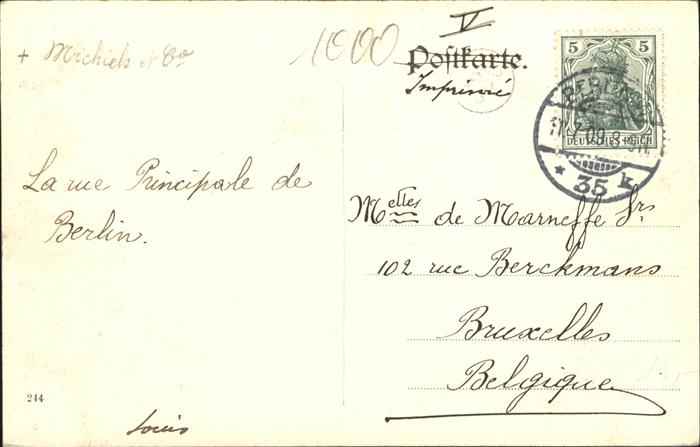 V
+ Michiels et Co
1000
Postkarte.
Imprimé
5 5
DEUTSCHES REICH
BERLIN
17.7.09.8-9N.
* 35 k
La rue Principale de
Berlin.
Melles de Marneffe Srs
102 rue Berckmans
Bruxelles
Belgique
244
Louis